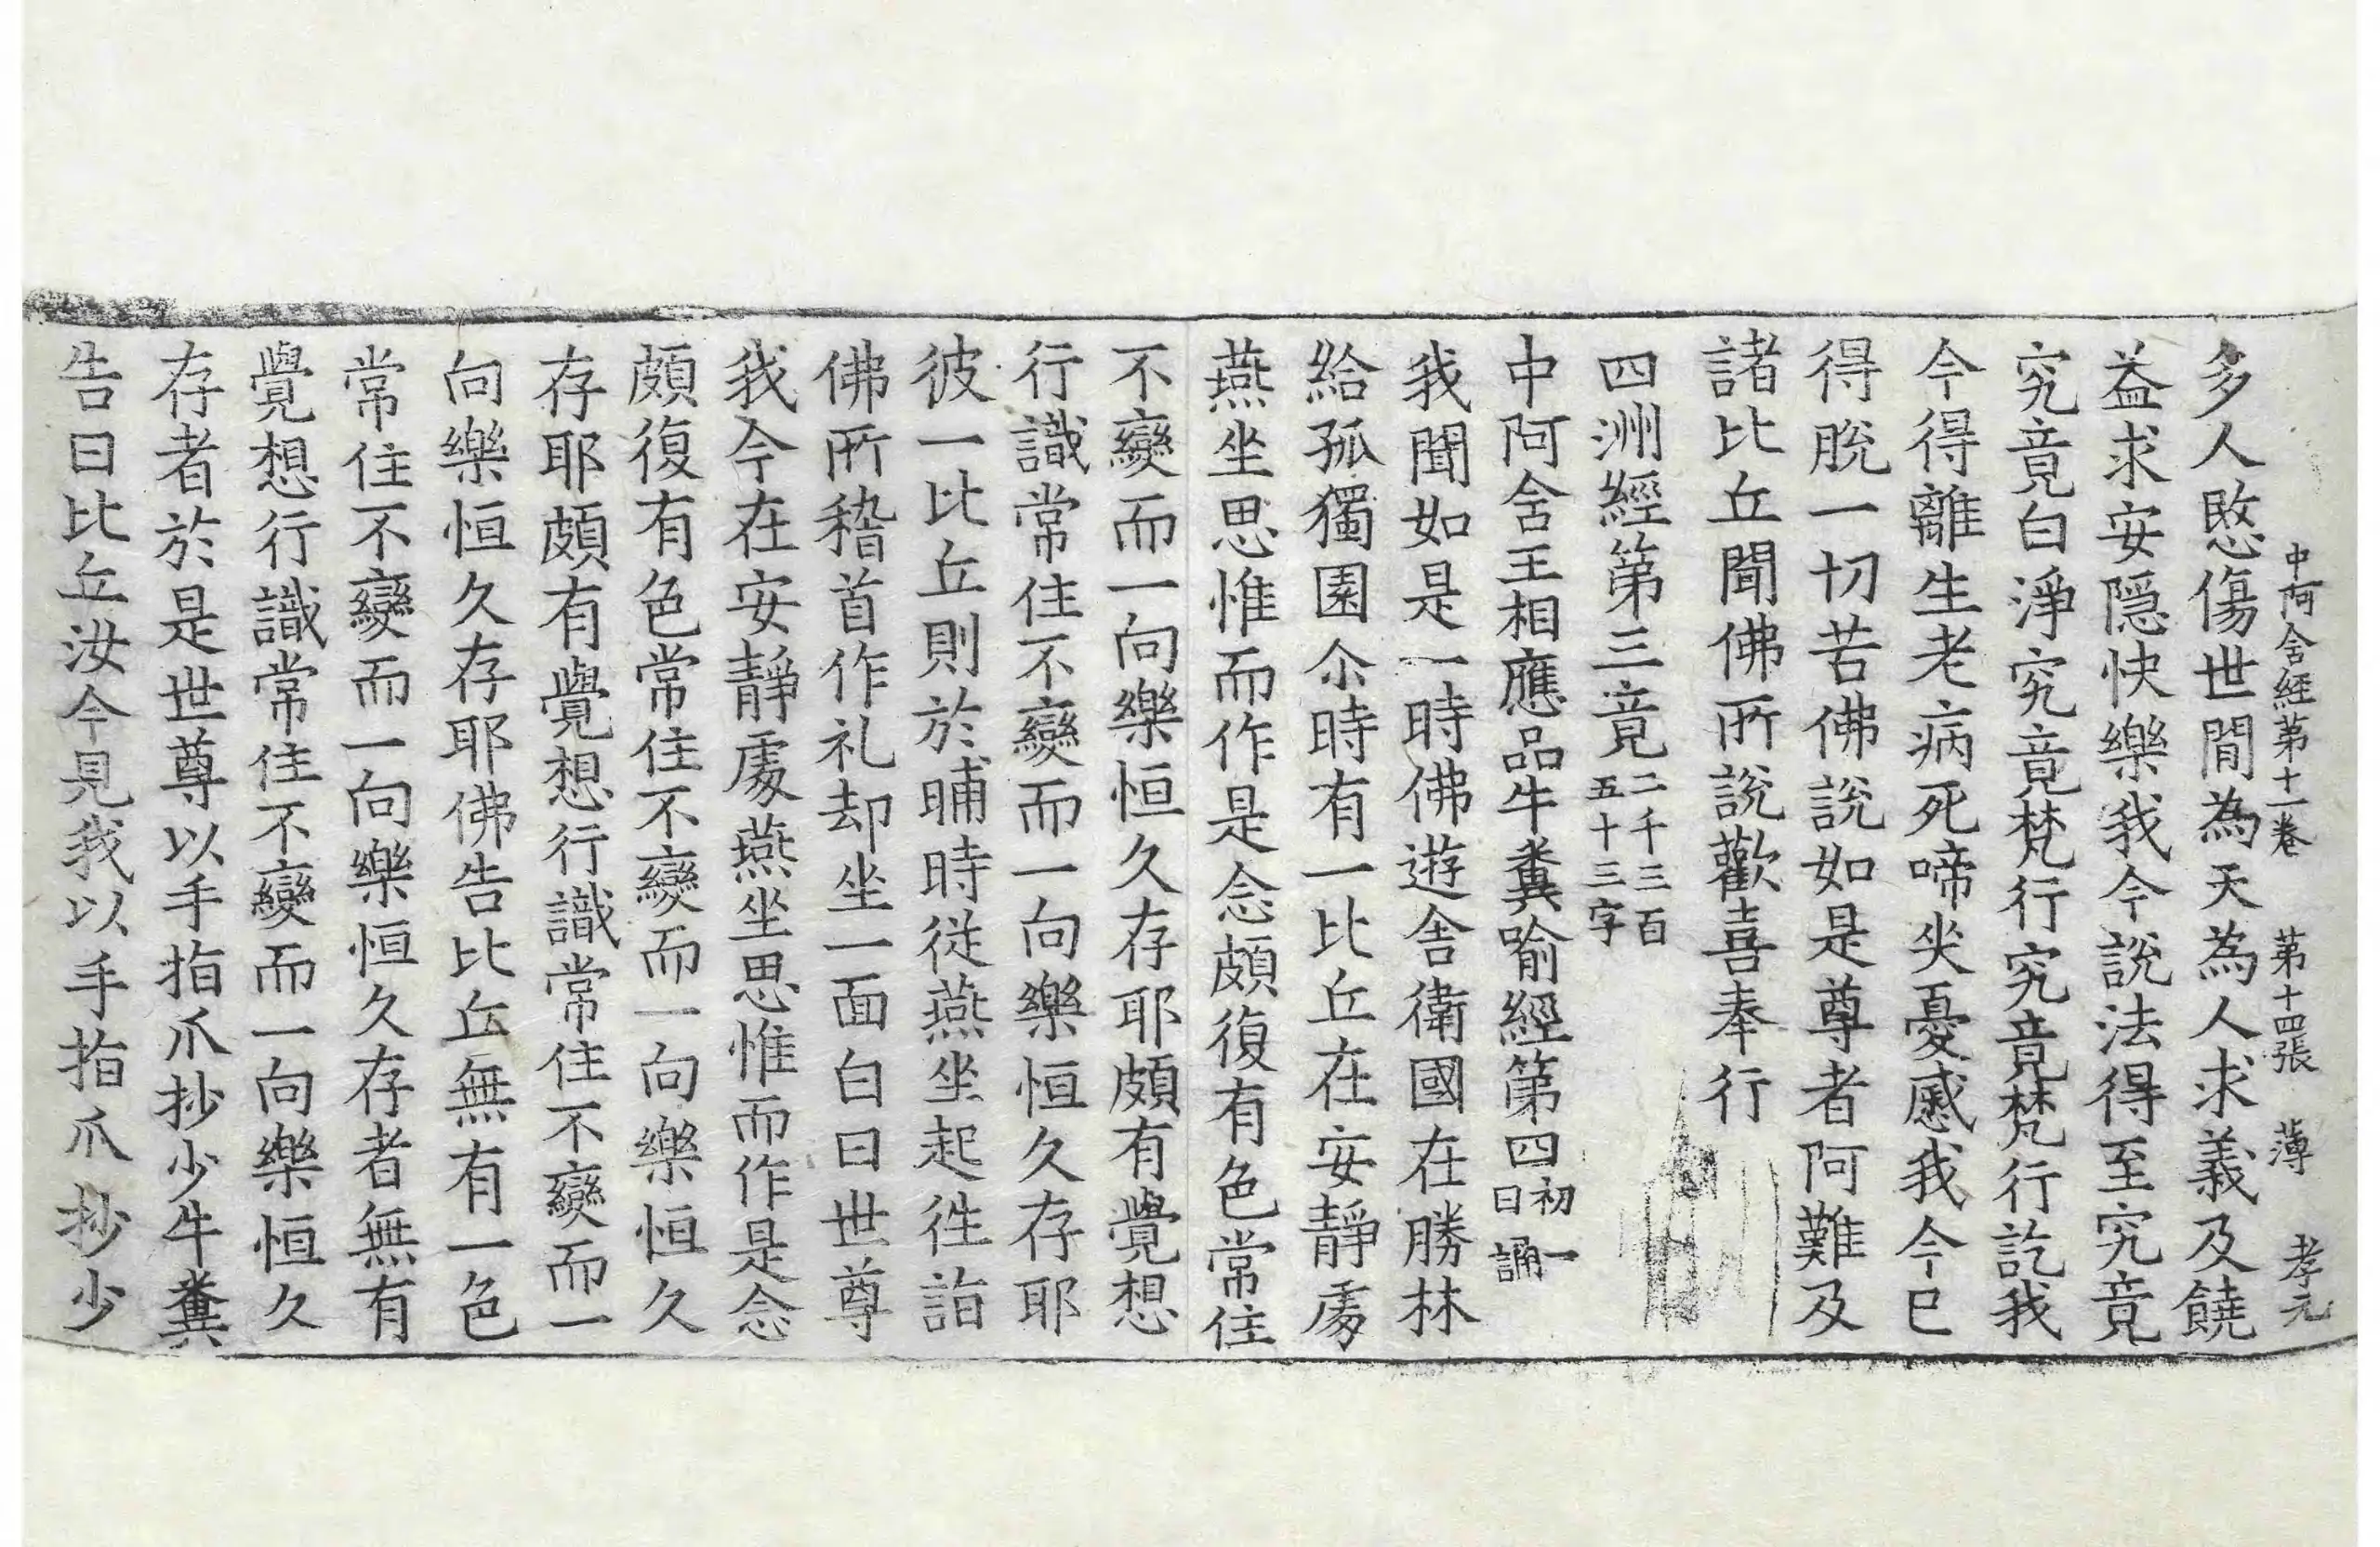 中阿含經第十一卷 第十四張 薄 孝元
多人愍傷世間為天為人求義及饒
益求安隱快樂我今說法得至究竟
究竟白淨究竟梵行究竟梵行訖我
今得離生老病死啼哭憂慼我今已
得脫一切苦佛說如是尊者阿難及
諸比丘聞佛所說歡喜奉行
四洲經第三竟二千三百五十三字
中阿含王相應品牛糞喻經第四初一日誦
我聞如是一時佛遊舍衛國在勝林
給孤獨園尒時有一比丘在安靜處
燕坐思惟而作是念頗復有色常住
不變而一向樂恒久存耶頗有覺想
行識常住不變而一向樂恒久存耶
彼一比丘則於晡時從燕坐起往詣
佛所稽首作礼却坐一面白曰世尊
我今在安靜處燕坐思惟而作是念
頗復有色常住不變而一向樂恒久
存耶頗有覺想行識常住不變而一
向樂恒久存耶佛告比丘無有一色
常住不變而一向樂恒久存者無有
覺想行識常住不變而一向樂恒久
存者於是世尊以手指爪抄少牛糞
告曰比丘汝今見我以手指爪抄少